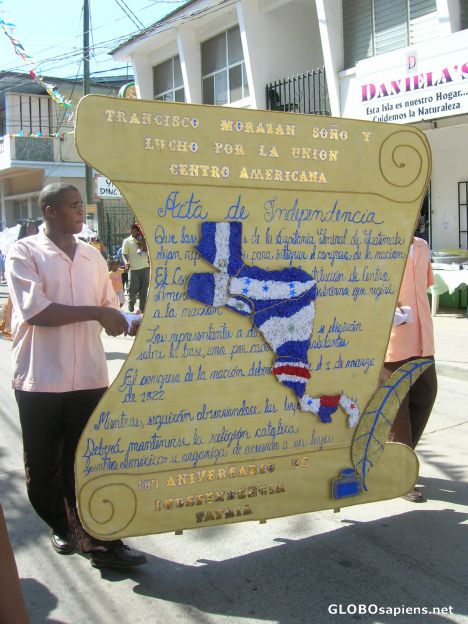 D
DANIELA'S
Esta Isla es nuestro Hogar
Cuidemos la Naturaleza
TRANCISCO MORAZAN SOÑO Y
LUCHO POR LA UNION
CENTRO AMERICANA
Acta de Independencia
Que las de la Capitania General de Guatemala
para integra el congreso de la nacion
El de Centro
que regirá
a la nación
Los representantes a se eligirán
sobre la base, uno por cada
El congreso de la nación deberá el 1 de marzo
de 1822
Mientras seguirán observandose las
Deberá mantenerse la religión catolica
se organiza de acuerdo a sus leyes
187 ANIVERSARIO DE
INDEPENDENCIA
PATRIA
GLOBOsapiens.net